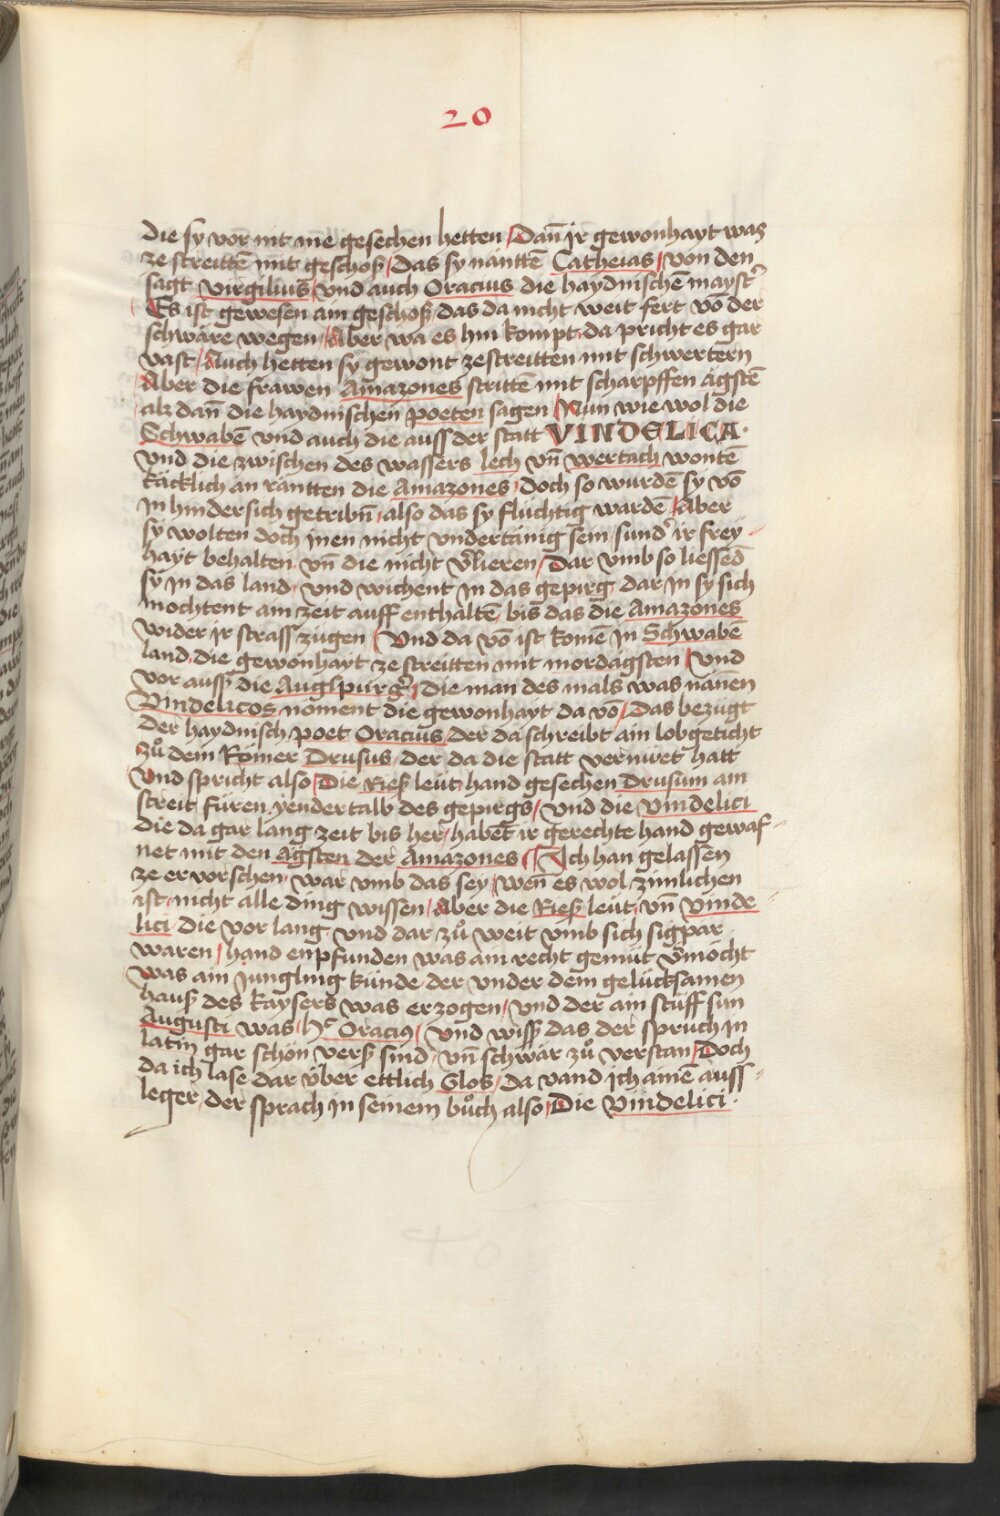 20
die sy vor nit me gesechen hetten / Dañ jr gewonhayt was
ze streittẽ mit geschoß / das sy nanttẽ Catheias / von den
sagt Virgilius / vnd auch Oracius die haydnischẽ mayst͛
Es ist gewesen ain geschoß / das da nicht weit fert võ der
schwäre wegen / Aber wa es hin kompt / da pricht es gar
vast / Auch hetten sy gewont ze streitten mit schwertern
Aber die frawen Amazones strittẽ mit scharpffen ägstẽ
alz dañ die haydnischen poeten sagen / Nun wie wol die
Schwabẽ vnd auch die auss der statt VINDELICA ·
vnd die zwischen des wassers lech vñ wertach wontẽ
käcklich an räntten die Amazones / doch so wurdẽ sy võ
in hindersich getribñ / also das sy flüchtig wardẽ / Aber
sy wolten doch jnen nicht vndertänig sein / sund͛ ir frey
hayt behalten / vñ die nicht v͛lieren / Dar vmb so liessẽd
sy in das land / vnd wichent in das gepirg / dar in sy sich
mochtent ain zeit auff enthaltẽ / bis das die Amazones
wider jr strass zugen / Vnd da võ ist komẽ in Schwabẽ
land / die gewonhayt ze streitten mit mordägsten / Vnd
vor auss die Auglpurg͛ / die man des mals was nänen
Vindelicos / noment die gewonhayt da võ / Das bezügt
der haydnisch poet Oracius / der da schreibt ain lobgeticht
zů dem Römer Drusus / der da die statt vernüret hatt
Vnd spricht also / Die Rieß leüt / hand gesechen Drusum am
streit füren / yendertalb des gepirgs / vnd die Vindelici
die da gar lang zeit bis her / habẽt ir gerechte hand gewaf-
net mit den ägsten der Amazones / Ich han gelassen
ze ervorschen / war vmb das sey / weñ es wol zimlichen
ist / nicht alle ding wissen / Aber die Rieß leüt / vñ Vinde
lici / die vor lang / vnd dar zů weit vmb sich sigpar
waren / hand enpfunden was ain recht gemüt v͛möcht
was ain jungling künde / der vnder dem gelücksamen
hauß des kaysers was erzogen / vnd der ain stüff sun
Augusti was / hᶜ Oraciꝰ / Vnd wiss das der spruch in
latin gar schön verß sind / vñ schwär zů verstan / Doch
da ich lase dar über ettlich Glos / da vand ich ainẽ auss-
leger / der sprach in seinem bůch also / Die Vindelici ·